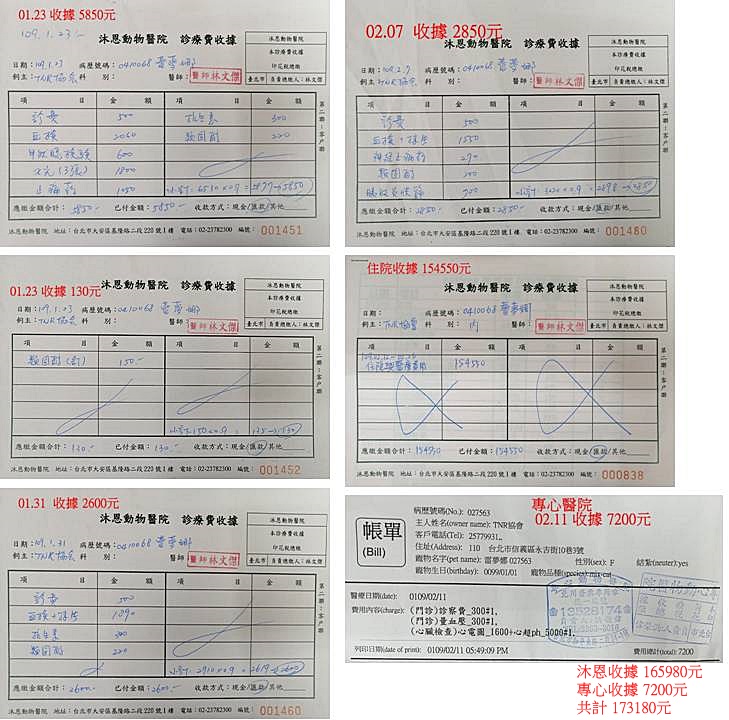 01.23 收據 5850元
109.1.23
沐恩動物醫院 診療費收據
沐恩動物醫院
本診療費收據
印花稅總繳
臺北市 負責總繳人:林文傑
日期:109.1.23 病歷號碼:0410068 雷夢娜
飼主:TNR協會 科 別: 醫師:醫師林文傑
項 目 金 額 項 目 金 額
診費 500 抗生素 300
血檢 2060 類固醇 220
600
X光(3張) 1800
止痛藥 1050 小計:6510×0.9=5877→5850
應繳金額合計:5850 已付金額:5850 收款方式:現金/匯款/其他
第二聯:客戶聯
沐恩動物醫院 地址:台北市大安區基隆路二段220號1樓 電話:02-23782300 編號:001451
02.07 收據 2850元
沐恩動物醫院 診療費收據
沐恩動物醫院
本診療費收據
印花稅總繳
臺北市 負責總繳人:林文傑
日期:109.2.7 病歷號碼:0410068 雷夢娜
飼主:TNR協會 科 別: 醫師:醫師林文傑
項 目 金 額 項 目 金 額
診費 500
1550
270
類固醇 200
700
應繳金額合計:2850 已付金額:2850 收款方式:現金/匯款/其他
第二聯:客戶聯
沐恩動物醫院 地址:台北市大安區基隆路二段220號1樓 電話:02-23782300 編號:001480
01.23 收據 130元
沐恩動物醫院 診療費收據
沐恩動物醫院
本診療費收據
印花稅總繳
臺北市 負責總繳人:林文傑
日期:109.1.23 病歷號碼:0410068 雷夢娜
飼主:TNR協會 科 別: 醫師:醫師林文傑
項 目 金 額 項 目 金 額
類固醇(針) 150
小計:150×0.9=135→130
應繳金額合計:130 已付金額:130 收款方式:現金/匯款/其他
第二聯:客戶聯
沐恩動物醫院 地址:台北市大安區基隆路二段220號1樓 電話:02-23782300 編號:001452
住院收據 154550元
沐恩動物醫院 診療費收據
沐恩動物醫院
本診療費收據
印花稅總繳
臺北市 負責總繳人:林文傑
日期: 病歷號碼:0410068 雷夢娜
飼主:TNR協會 科 別:內 醫師:醫師林文傑
項 目 金 額 項 目 金 額
住院 醫療費用 154550
應繳金額合計:154550 已付金額:154550 收款方式:現金/匯款/其他
第二聯:客戶聯
沐恩動物醫院 地址:台北市大安區基隆路二段220號1樓 電話:02-23782300 編號:000838
01.31 收據 2600元
沐恩動物醫院 診療費收據
沐恩動物醫院
本診療費收據
印花稅總繳
臺北市 負責總繳人:林文傑
日期:109.1.31 病歷號碼:0410068 雷夢娜
飼主:TNR協會 科 別: 醫師:醫師林文傑
項 目 金 額 項 目 金 額
診費 500
1890
抗生素 300
類固醇 220
小計:2910×0.9=2619→2600
應繳金額合計:2600 已付金額:2600 收款方式:現金/匯款/其他
第二聯:客戶聯
沐恩動物醫院 地址:台北市大安區基隆路二段220號1樓 電話:02-23782300 編號:001460
專心醫院
02.11 收據 7200元
帳單
(Bill)
病歷號碼(No.): 027563
主人姓名(owner name): TNR協會
客戶電話(Tel): 25779931,,
住址(Address): 110 台北市信義區永吉街10巷3號
寵物名字(pet name): 雷夢娜 027563 性別(sex): F 結紮(neuter):yes
寵物生日(birthday): 0099/01/01 寵物品種(species):mix-cat
醫療日期(date): 0109/02/11
費用內容(charge): (門診)診察費_300#1,
(門診)量血壓_300#1,
(心臟檢查)心電圖_1600+心超ph_5000#1,
13528174
列印日期(date of print): 0109/02/11 05:49:09 PM 費用總計(total): 7200
沐恩收據 165980元
專心收據 7200元
共計 173180元